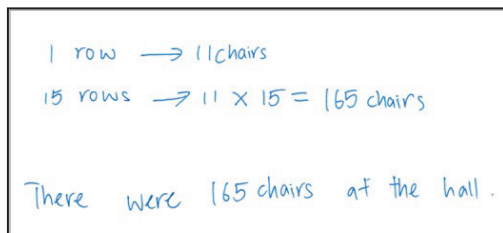 1 row → 11 chairs
15 rows → 11 × 15 = 165 chairs
There were 165 chairs at the hall.